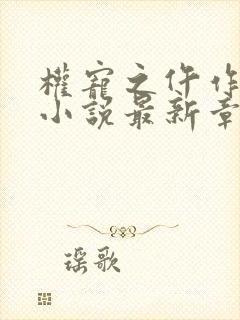 權寵之仵作
小說最新章
瑶歌